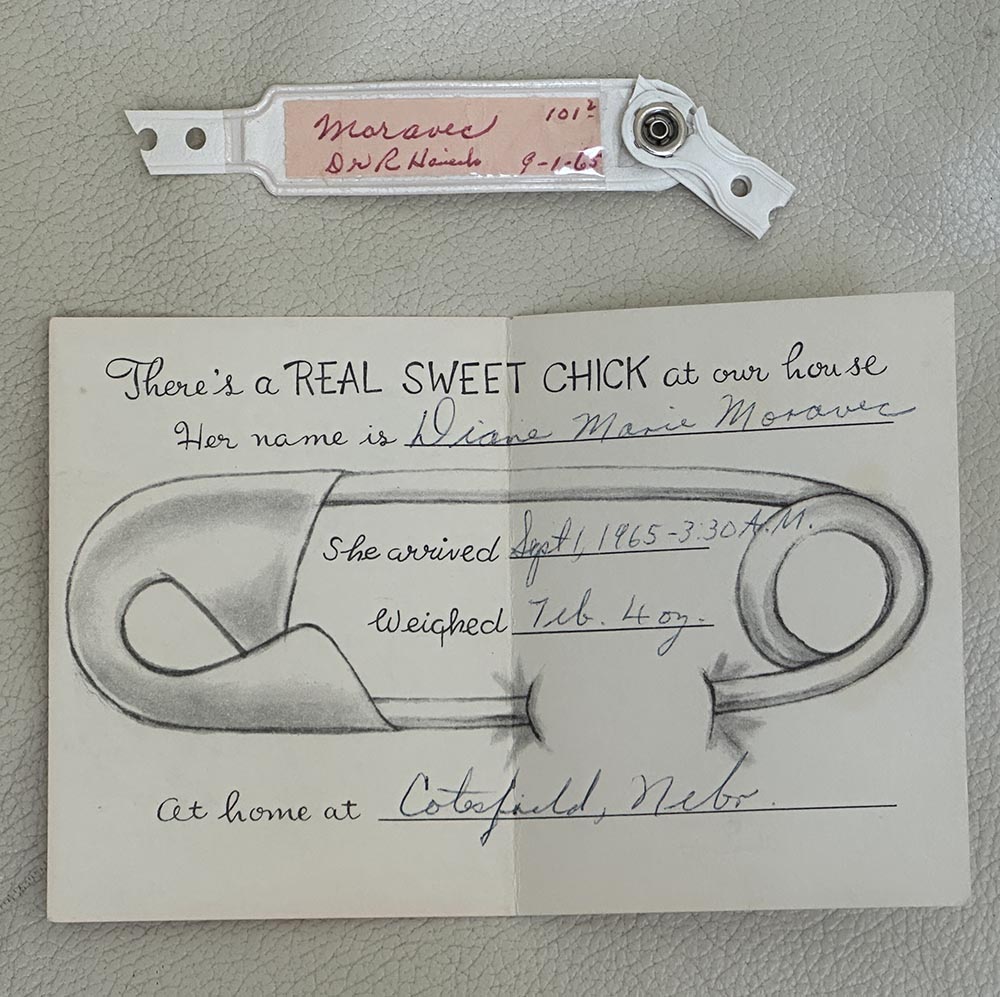 Moravec 101²
Dr R 9-1-65
There's a REAL SWEET CHICK at our house
Her name is Diane Marie Moravec
She arrived Sept 1, 1965 - 3:30 A.M.
Weighed 7 lb. 4 oz.
At home at Cotesfield, Nebr.